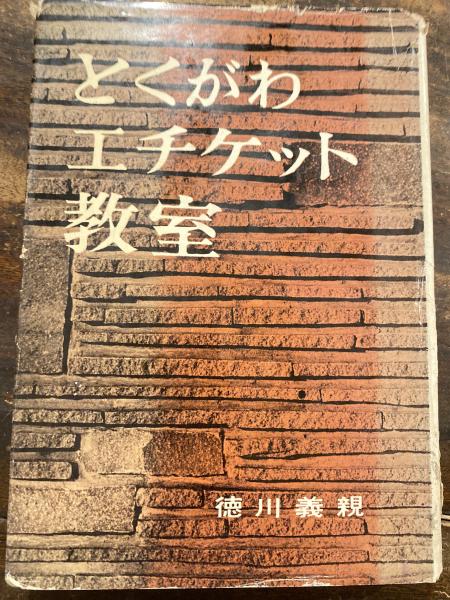 とくがわ
エチケット
教室
徳川義親